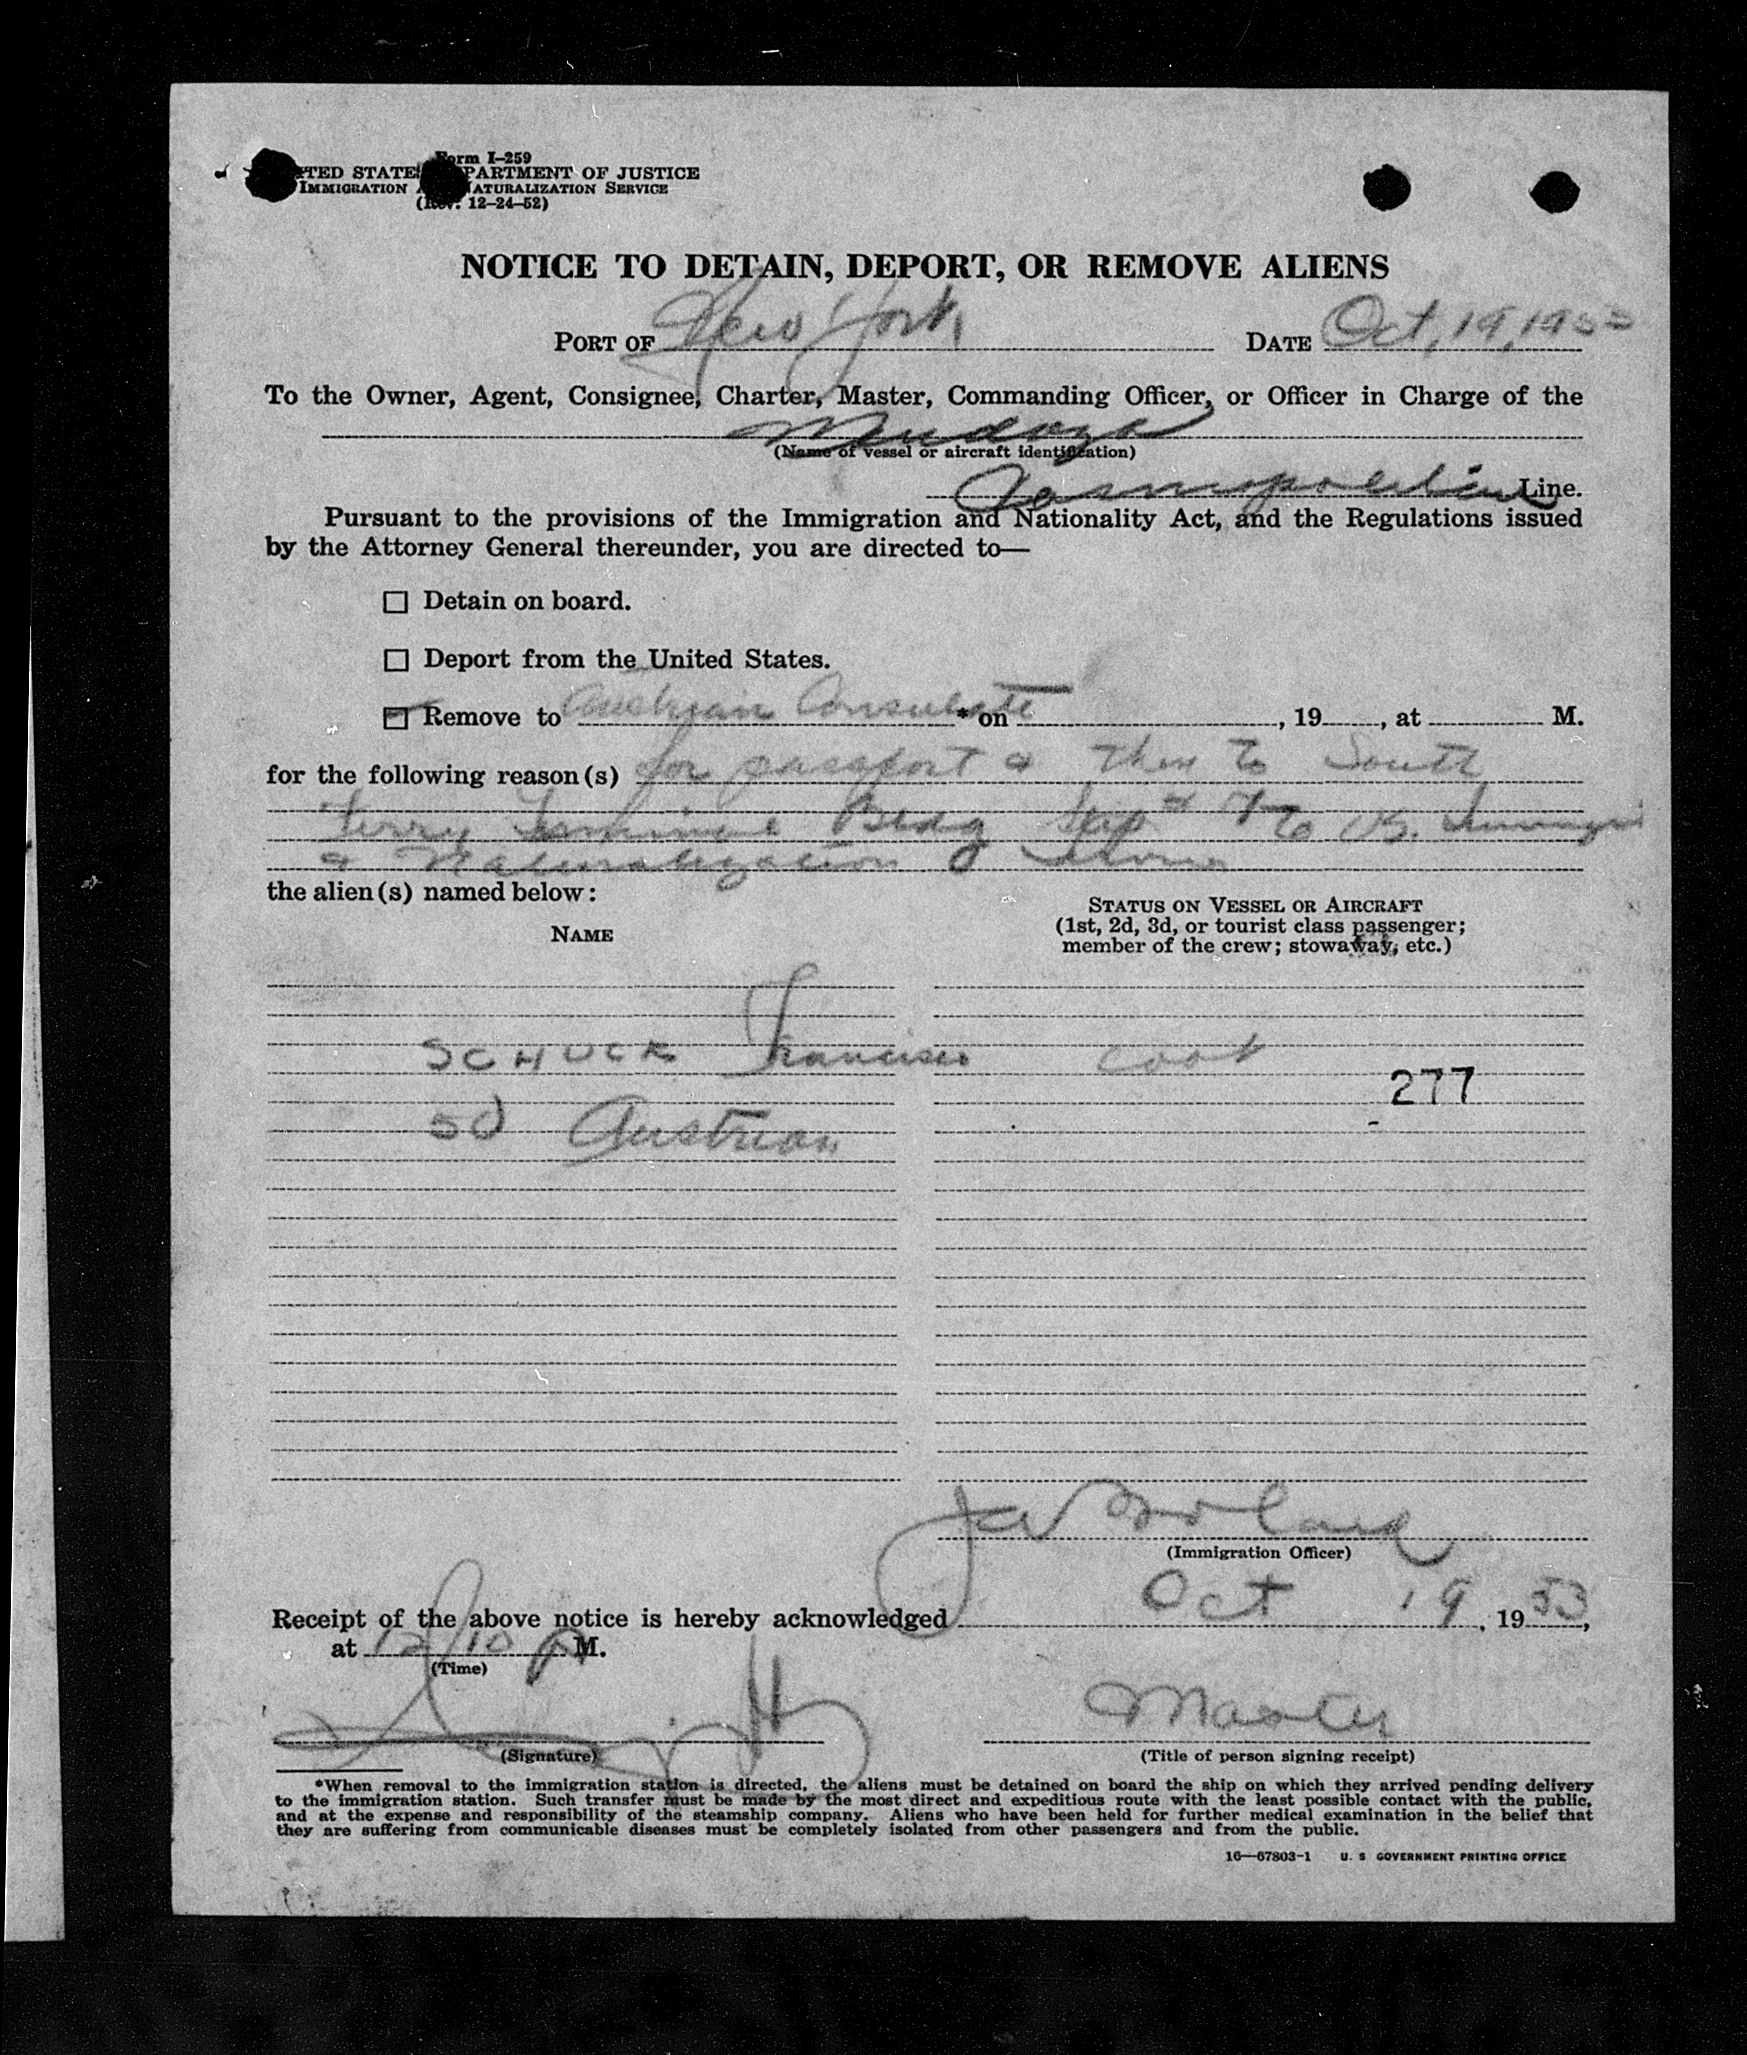 Form I-259
TED STATE PARTMENT OF JUSTICE
IMMIGRATION NATURALIZATION SERVICE
(Rev. 12-24-52)
NOTICE TO DETAIN, DEPORT, OR REMOVE ALIENS
PORT OF New York DATE Oct, 19, 1953
To the Owner, Agent, Consignee, Charter, Master, Commanding Officer, or Officer in Charge of the
Mendoza
(Name of vessel or aircraft identification)
Cosmopolitan Line.
Pursuant to the provisions of the Immigration and Nationality Act, and the Regulations issued
by the Attorney General thereunder, you are directed to—
☐ Detain on board.
☐ Deport from the United States.
☑ Remove to Austrian Consulate * on , 19 , at M.
for the following reason(s) for passport & then to South
Ferry Terminal Bldg Slip # 7 to U.S. Immigr
& Naturalization
the alien(s) named below:
NAME
STATUS ON VESSEL OR AIRCRAFT
(1st, 2d, 3d, or tourist class passenger;
member of the crew; stowaway, etc.)
SCHUCK Francisco cook
277
50 Austrian
(Immigration Officer)
Receipt of the above notice is hereby acknowledged Oct 19, 1953,
at 12/10 P M.
(Time)
Master
(Signature)
(Title of person signing receipt)
*When removal to the immigration station is directed, the aliens must be detained on board the ship on which they arrived pending delivery
to the immigration station. Such transfer must be made by the most direct and expeditious route with the least possible contact with the public,
and at the expense and responsibility of the steamship company. Aliens who have been held for further medical examination in the belief that
they are suffering from communicable diseases must be completely isolated from other passengers and from the public.
16—67803-1 U. S GOVERNMENT PRINTING OFFICE